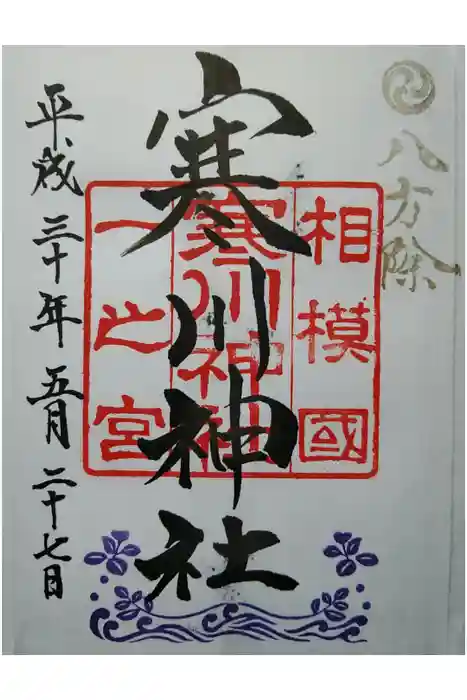 八方除
相模國
寒川神社
一之宮
寒川神社
平成三十年五月二十七日